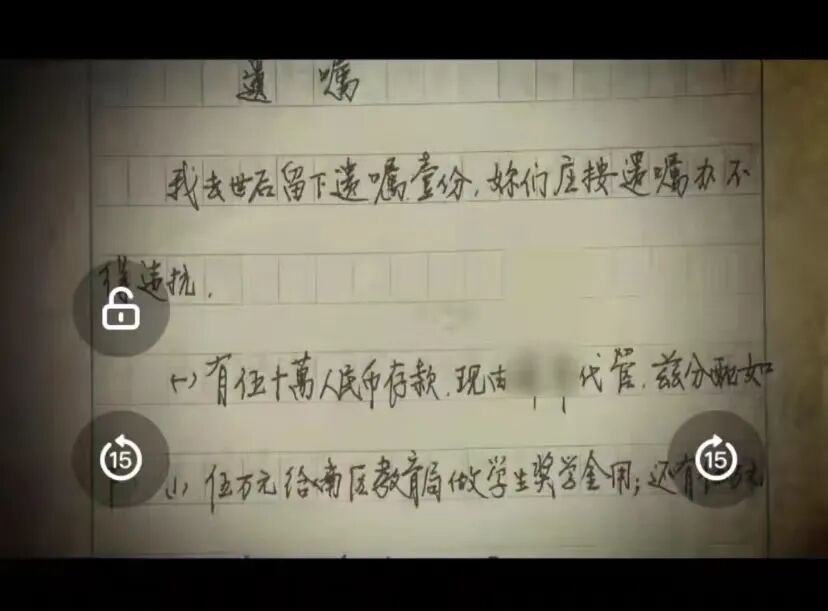 遗嘱
我去世后留下遗嘱壹份，妳们应按遗嘱办不
得违抗．
(一)有伍十萬人民币存款．现由 代管．兹分配如
(1) 伍万元给南区教育局做学生奖学金用；还有
15
15